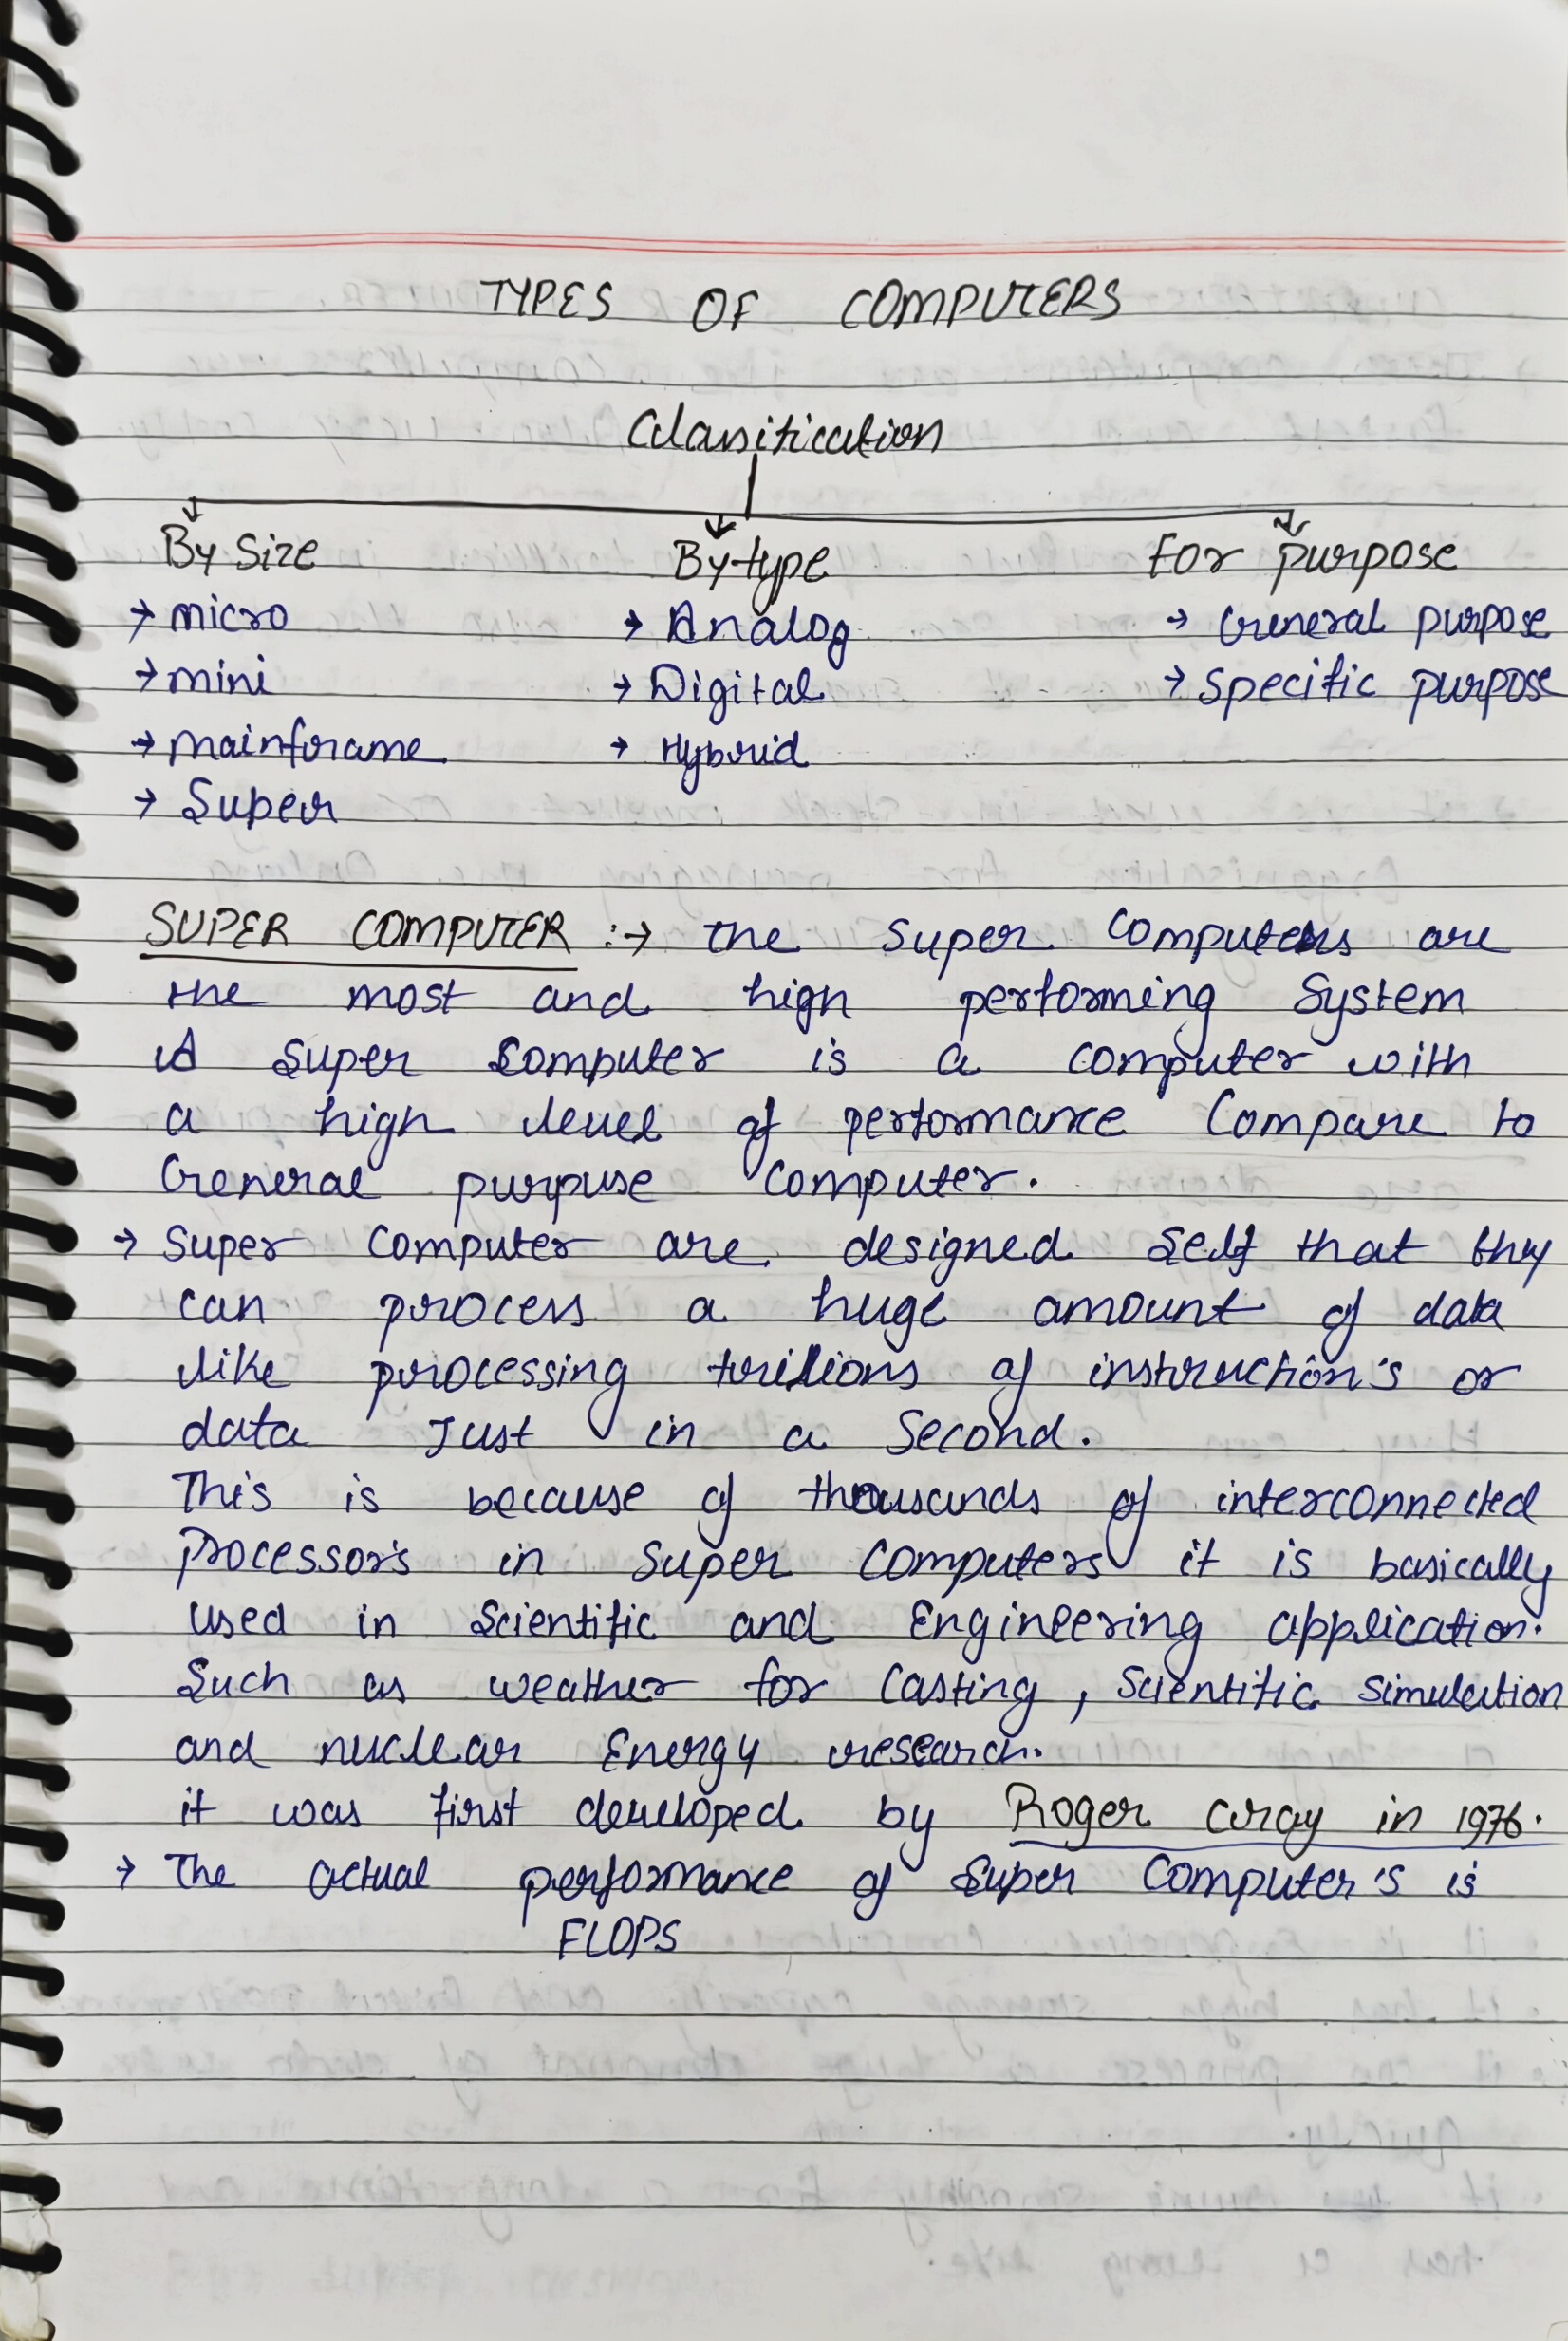 TYPES OF COMPUTERS
Classification
By Size By type For purpose
→ micro → Analog → General purpose
→ mini → Digital → Specific purpose
→ mainframe → Hybrid
→ Super
SUPER COMPUTER :→ The Super Computers are
the most and high performing System
A Super Computer is a computer with
a high level of performance Compare to
General purpuse Computer.
→ Super Computer are designed Self that they
can process a huge amount of data
like processing trillions of instruction's or
data Just in a Second.
This is because of thousands of interconnected
Processor's in Super Computers it is basically
used in Scientific and Engineering application.
Such as weather for Casting, Scientific Simulation
and nuclear Energy research.
it was first developed by Roger Cray in 1976.
→ The actual performance of Super Computer's is
FLOPS